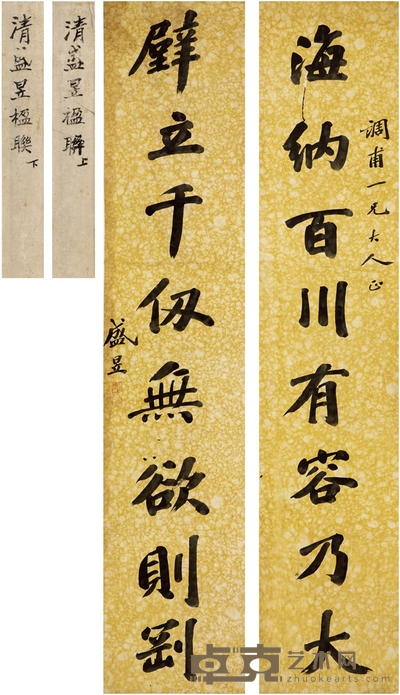 海納百川有容乃大
調甫一兄大人正
壁立千仞無欲則剛
盛昱
清盛昱楹聯上
清盛昱楹聯下
卓克艺术网
zhuokearts.com